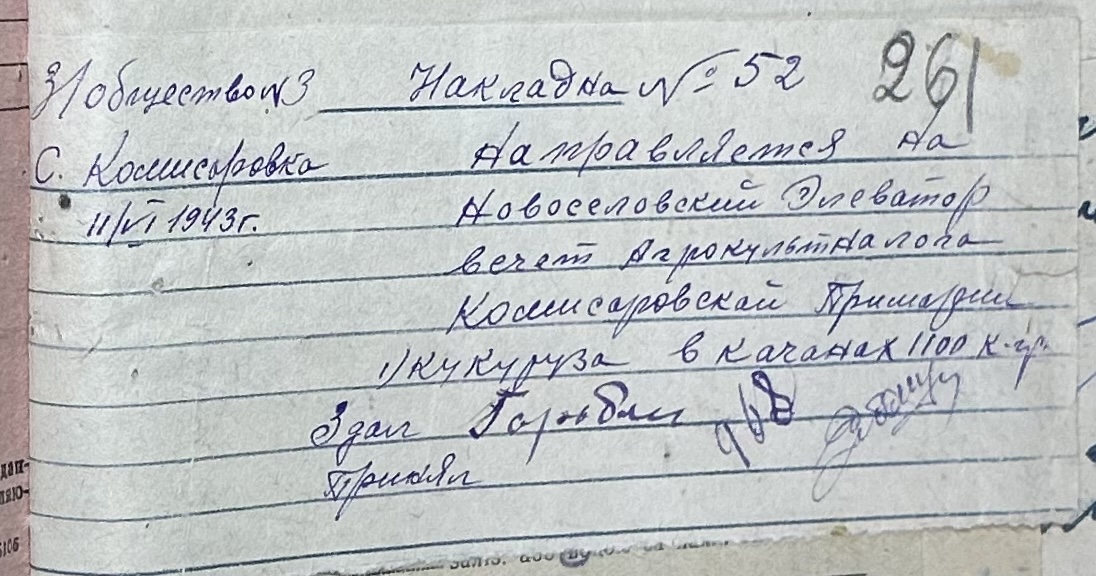 З/общество N3 Накладна № 52 261
С. Комисаровка Направляется на
11/VI 1943г. Новоселовский Элеватор
вечет Агрокультналога
Комисаровской Примарии
1) Кукуруза в качанах 1100 к-гр.
Здал 968
Принял